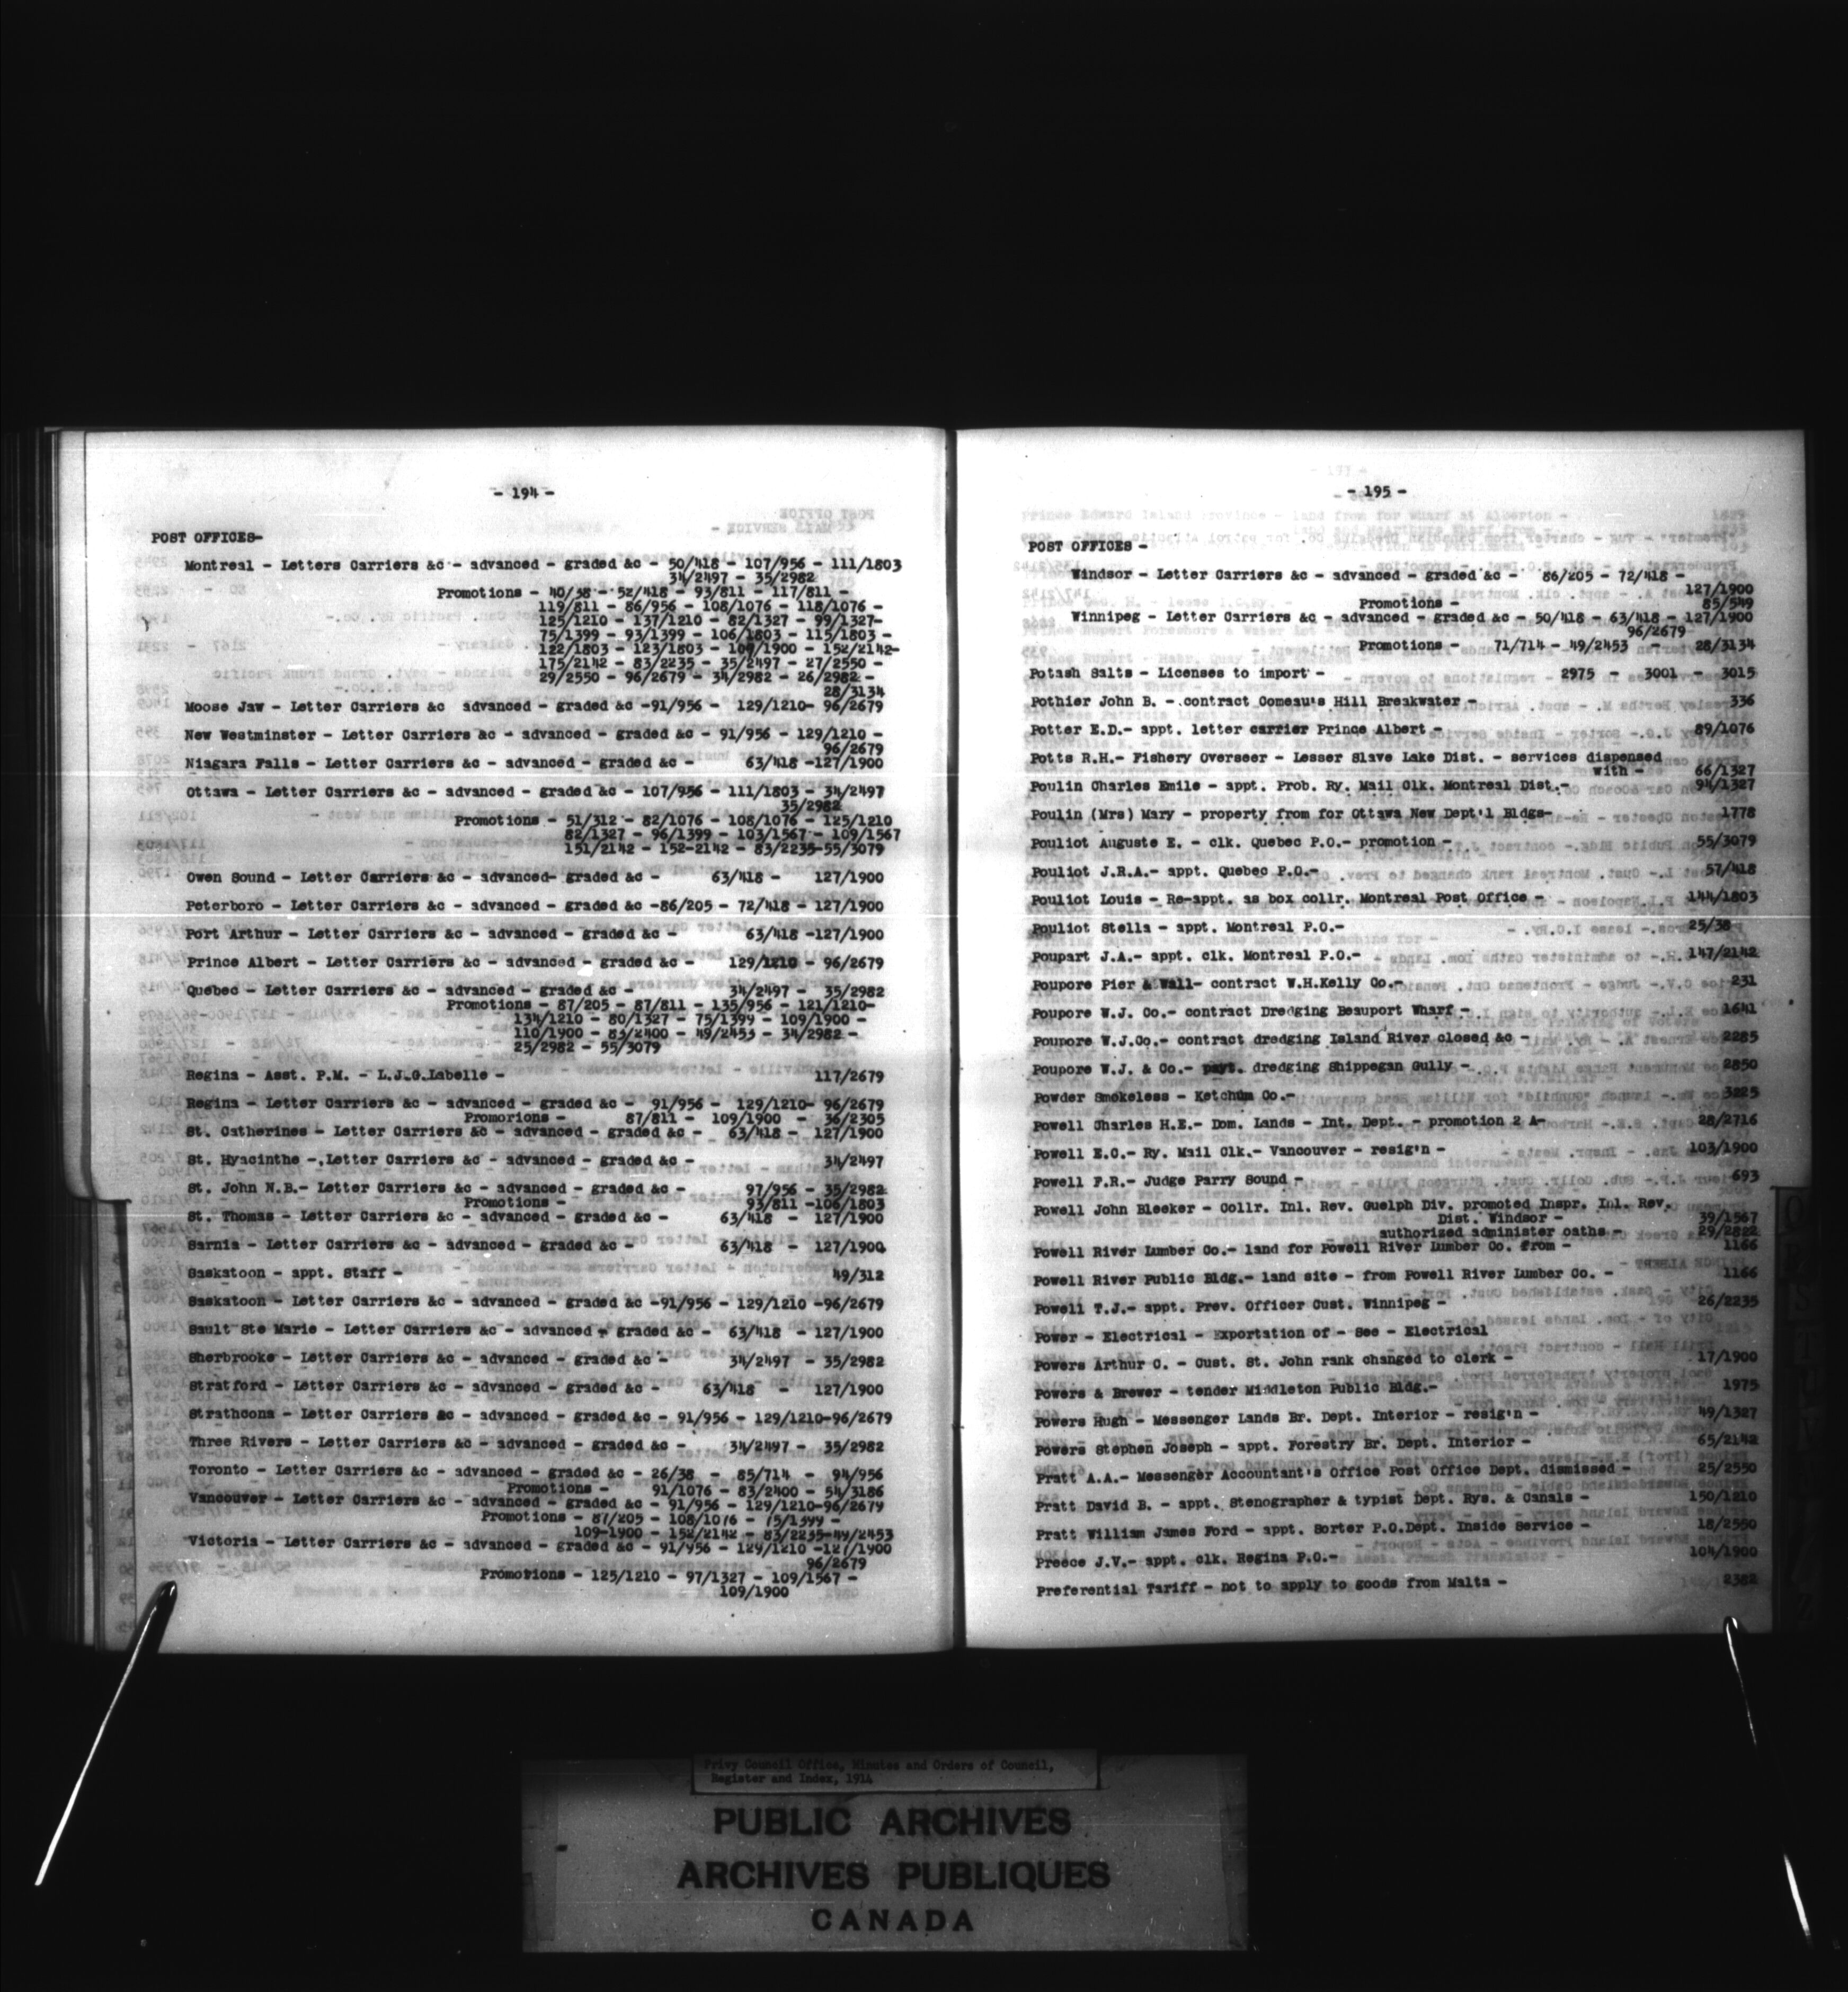 - 194 -
POST OFFICES-
Montreal - Letters Carriers &c - advanced - graded &c - 50/418 - 107/956 - 111/1803
34/2497 - 35/2982
Promotions - 40/38 - 52/418 - 93/811 - 117/811 -
119/811 - 86/956 - 108/1076 - 118/1076 -
125/1210 - 137/1210 - 82/1327 - 99/1327-
75/1399 - 93/1399 - 106/1803 - 115/1803 -
122/1803 - 123/1803 - 109/1900 - 152/2142-
175/2142 - 83/2235 - 35/2497 - 27/2550 -
29/2550 - 96/2679 - 34/2982 - 26/2982 -
28/3134
Moose Jaw - Letter Carriers &c advanced - graded &c -91/956 - 129/1210- 96/2679
New Westminster - Letter Carriers &c - advanced - graded &c - 91/956 - 129/1210 -
96/2679
Niagara Falls - Letter Carriers &c - advanced - graded &c - 63/418 -127/1900
Ottawa - Letter Carriers &c - advanced - graded &c - 107/956 - 111/1803 - 34/2497
35/2982
Promotions - 51/312 - 82/1076 - 108/1076 - 125/1210
82/1327 - 96/1399 - 103/1567 - 109/1567
151/2142 - 152-2142 - 83/2235-55/3079
Owen Sound - Letter Carriers &c - advanced- graded &c - 63/418 - 127/1900
Peterboro - Letter Carriers &c - advanced - graded &c -86/205 - 72/418 - 127/1900
Port Arthur - Letter Carriers &c - advanced - graded &c - 63/418 -127/1900
Prince Albert - Letter Carriers &c - advanced - graded &c - 129/1210 - 96/2679
Quebec - Letter Carriers &c - advanced - graded &c - 34/2497 - 35/2982
Promotions - 87/205 - 87/811 - 135/956 - 121/1210-
134/1210 - 80/1327 - 75/1399 - 109/1900 -
110/1900 - 83/2400 - 49/2453 - 34/2982 -
25/2982 - 55/3079
Regina - Asst. P.M. - L.J.G.Labelle - 117/2679
Regina - Letter Carriers &c - advanced - graded &c - 91/956 - 129/1210- 96/2679
Promorions - 87/811 - 109/1900 - 36/2305
St. Catherines - Letter Carriers &c - advanced - graded &c - 63/418 - 127/1900
St. Hyacinthe -,Letter Carriers &c - advanced - graded &c - 34/2497
St. John N.B.- Letter Carriers &c - advanced - graded &c - 97/956 - 35/2982
Promotions - 93/811 -106/1803
St. Thomas - Letter Carriers &c - advanced - graded &c - 63/418 - 127/1900
Sarnia - Letter Carriers &c - advanced - graded &c - 63/418 - 127/1900
Saskatoon - appt. Staff - 49/312
Saskatoon - Letter Carriers &c - advanced - graded &c -91/956 - 129/1210 -96/2679
Sault Ste Marie - Letter Carriers &c - advanced - graded &c - 63/418 - 127/1900
Sherbrooke - Letter Carriers &c - advanced - graded &c - 34/2497 - 35/2982
Stratford - Letter Carriers &c - advanced - graded &c - 63/418 - 127/1900
Strathcona - Letter Carriers &c - advanced - graded &c - 91/956 - 129/1210-96/2679
Three Rivers - Letter Carriers &c - advanced - graded &c - 34/2497 - 35/2982
Toronto - Letter Carriers &c - advanced - graded &c - 26/38 - 85/714 - 94/956
Promotions - 91/1076 - 83/2400 - 54/3186
Vancouver - Letter Carriers &c - advanced - graded &c - 91/956 - 129/1210-96/2679
Promotions - 87/205 - 108/1076 - 75/1399 -
109-1900 - 152/2142 - 83/2235-49/2453
Victoria - Letter Carriers &c - advanced - graded &c - 91/956 - 129/1210 -127/1900
96/2679
Promotions - 125/1210 - 97/1327 - 109/1567 -
109/1900
- 195 -
POST OFFICES -
Windsor - Letter Carriers &c - advanced - graded &c - 86/205 - 72/418 -
127/1900
Promotions - 85/549
Winnipeg - Letter Carriers &c - advanced - graded &c - 50/418 - 63/418 - 127/1900
96/2679
Promotions - 71/714 - 49/2453 - 28/3134
Potash Salts - Licenses to import - 2975 - 3001 - 3015
Pothier John B. - contract Comeau's Hill Breakwater - 336
Potter E.D.- appt. letter carrier Prince Albert - 89/1076
Potts R.H.- Fishery Overseer - Lesser Slave Lake Dist. - services dispensed
with - 66/1327
Poulin Charles Emile - appt. Prob. Ry. Mail Clk. Montreal Dist.- 94/1327
Poulin (Mrs) Mary - property from for Ottawa New Dept'l Bldgs- 1778
Pouliot Auguste E. - clk. Quebec P.O.- promotion - 55/3079
Pouliot J.R.A.- appt. Quebec P.O.- 57/418
Pouliot Louis - Re-appt. as box collr. Montreal Post Office - 144/1803
Pouliot Stella - appt. Montreal P.O.- 25/38
Poupart J.A.- appt. clk. Montreal P.O.- 147/2142
Poupore Pier & Wall- contract W.H.Kelly Co.- 231
Poupore W.J. Co.- contract Dredging Beauport Wharf - 1641
Poupore W.J.Co.- contract dredging Island River closed &c - 2285
Poupore W.J. & Co.- payt. dredging Shippegan Gully - 2850
Powder Smokeless - Ketchum Co.- 3225
Powell Charles H.E.- Dom. Lands - Int. Dept. - promotion 2 A- 28/2716
Powell E.C.- Ry. Mail Clk.- Vancouver - resig'n - 103/1900
Powell F.R.- Judge Parry Sound - 693
Powell John Bleeker - Collr. Inl. Rev. Guelph Div. promoted Inspr. Inl. Rev.
Dist. Windsor - 39/1567
authorized administer oaths - 29/2822
Powell River Lumber Co.- land for Powell River Lumber Co. from - 1166
Powell River Public Bldg.- land site - from Powell River Lumber Co. - 1166
Powell T.J.- appt. Prev. Officer Cust. Winnipeg - 26/2235
Power - Electrical - Exportation of - See - Electrical
Powers Arthur C. - Cust. St. John rank changed to clerk - 17/1900
Powers & Brewer - tender Middleton Public Bldg.- 1975
Powers Hugh - Messenger Lands Br. Dept. Interior - resig'n - 49/1327
Powers Stephen Joseph - appt. Forestry Br. Dept. Interior - 65/2142
Pratt A.A.- Messenger Accountant's Office Post Office Dept. dismissed - 25/2550
Pratt David B. - appt. Stenographer & typist Dept. Rys. & Canals - 150/1210
Pratt William James Ford - appt. Sorter P.O.Dept. Inside Service - 18/2550
Preece J.V.- appt. clk. Regina P.O.- 104/1900
Preferential Tariff - not to apply to goods from Malta - 2382
Privy Council Office, Minutes and Orders of Council,
Register and Index, 1914
PUBLIC ARCHIVES
ARCHIVES PUBLIQUES
CANADA